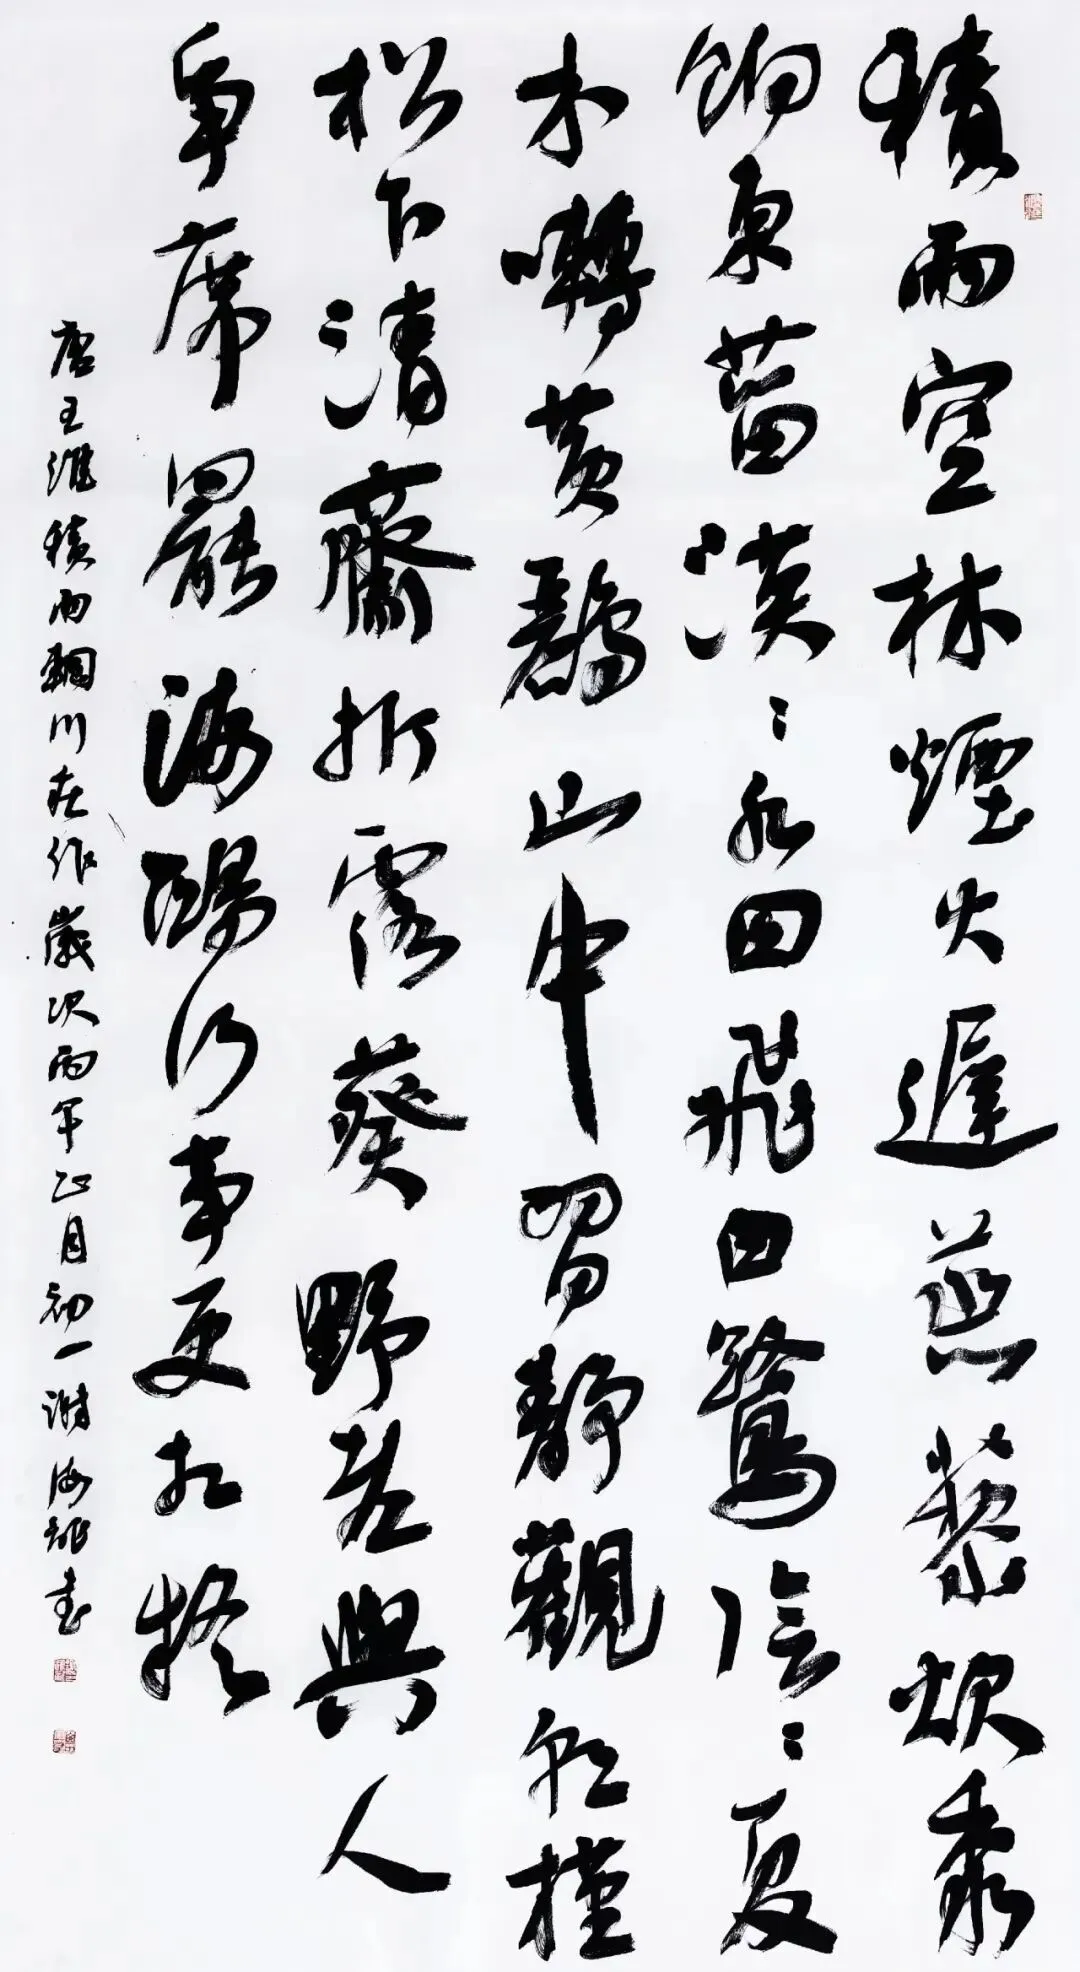 積雨空林煙火遲蒸藜炊黍
餉東菑漠〻水田飛白鷺陰〻夏
木囀黃鸝山中習靜觀朝槿
松下清齋折露葵野老與人
爭席罷海鷗何事更相疑
唐王維積雨輞川庄作歲次丙午正月初一謝海書